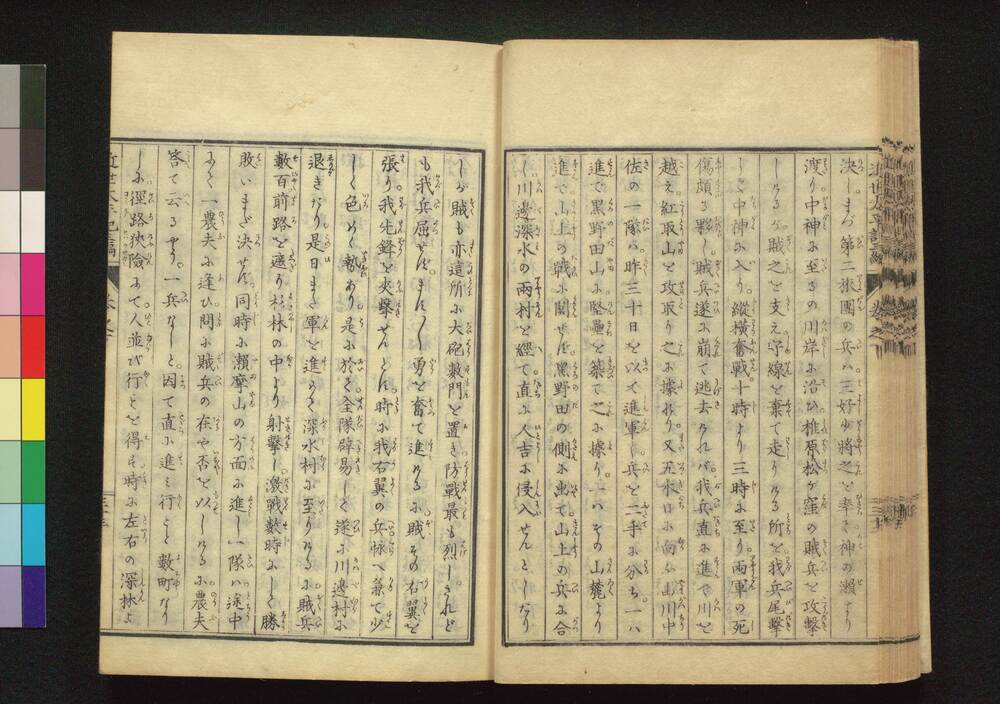 決。まづ第二旅團の兵ハ三好少將之を率ゐ神の瀬より
渡り中神に至るの川岸に沿ひ椎原松ケ窪の賊兵を攻擊
しけるが賊之を支え守線を棄て走りける所を我兵尾擊
して中神に入り。縱横奮戰十時より三時に至り兩軍の死
傷頗る夥し賊兵遂に崩て逃去けれバ我兵直に進で川を
越え紅取山を攻取り之に據れり又
佐の一隊ハ昨三十日を以て進軍し兵を二手に分ち。一ハ
進で黑野田山に堅壘を築て之に據り。一ハその山麓より
進で山上の戰に關せず黑野田の側に出で山上の兵に合
し川邊深水の兩村を經て直に人吉に侵入せんとしたり
しが賊も亦這所に大砲數門を置き防戰最も烈し。されど
も我兵屈せずますます勇を奮て進けるに賊その右翼を
張り我先鋒を夾擊せんとす。時に我右翼の兵
しく色めく勢あり是に於て全隊辟易して遂に川邊村に
退きたり是日また軍を進めて深水村に至りけるに賊兵
數百前路を遮り杉林の中より射擊し。激戰數時にして勝
敗いまだ決せず同時に瀬摩山の方面に進し一隊ハ途中
にて一農夫に逢ひ問に賊兵の在や否を以しけるに農夫
答て云るやう。一兵なしと。因て直に進ミ行こと數町なり
しに徑路狹險にて人並び行ことを得ず時に左右の深林よ
近世太平記